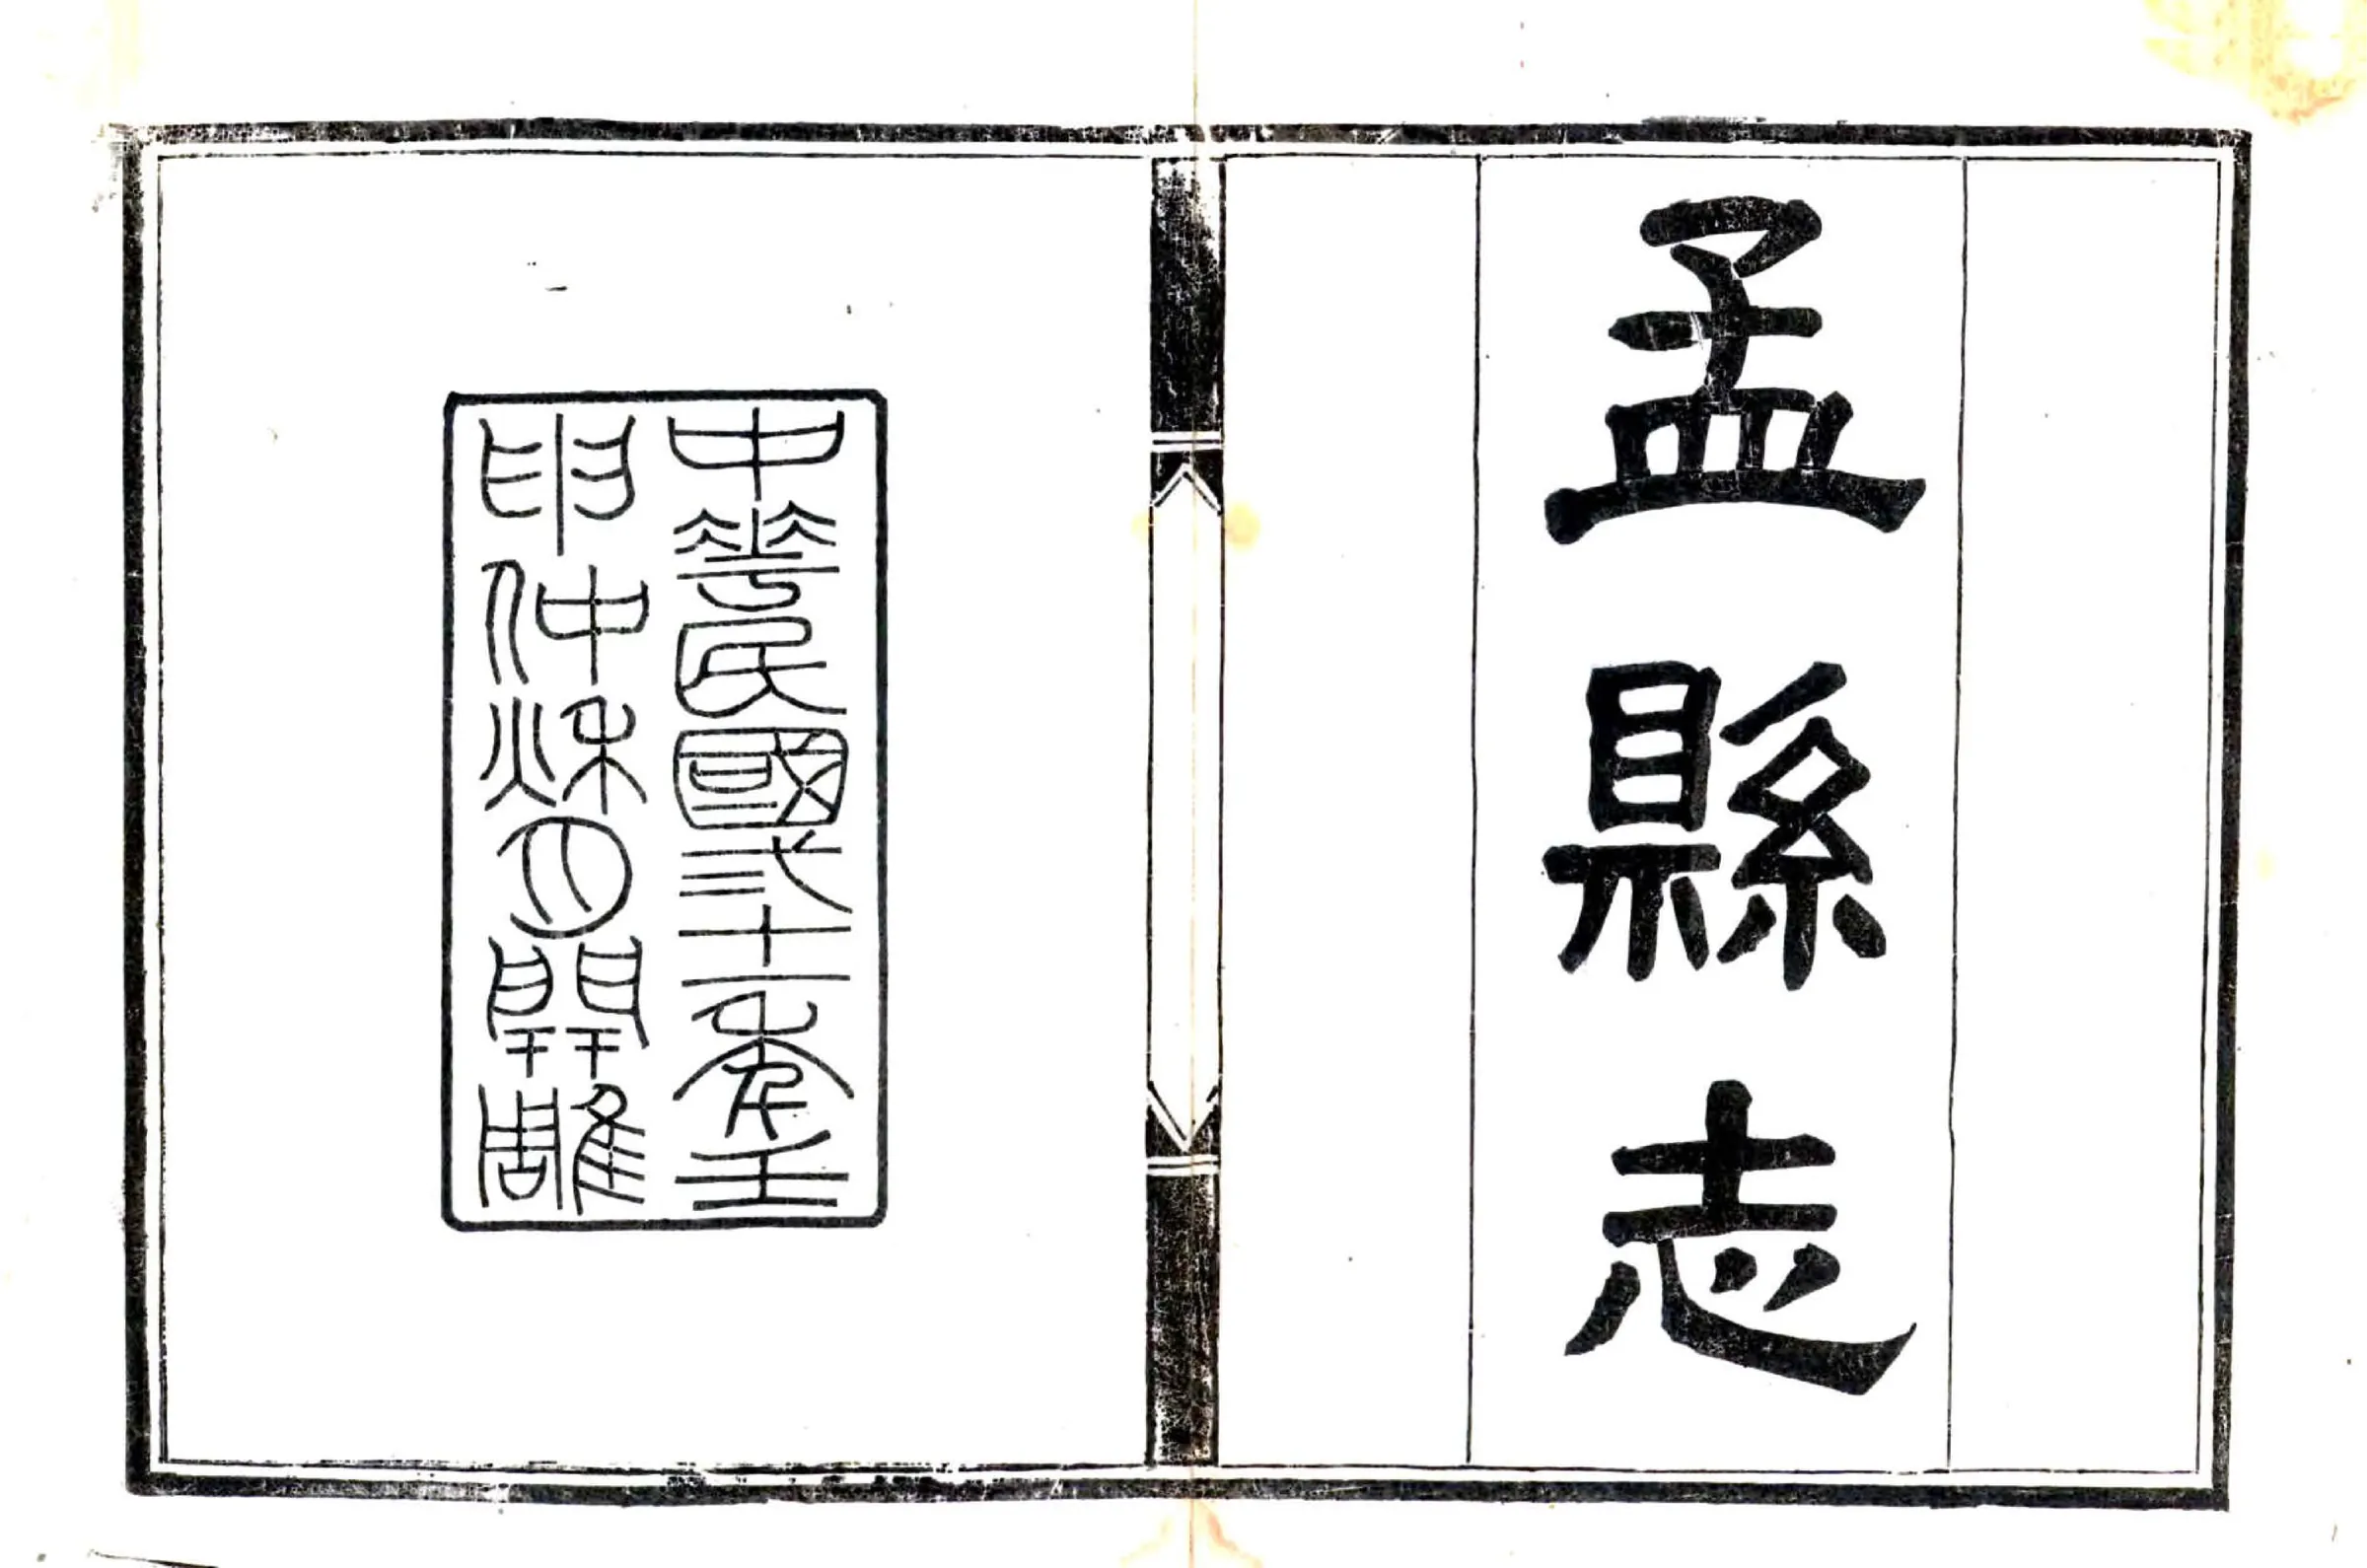 孟縣志
中華民國弍十一年壬
申仲秋月開雕